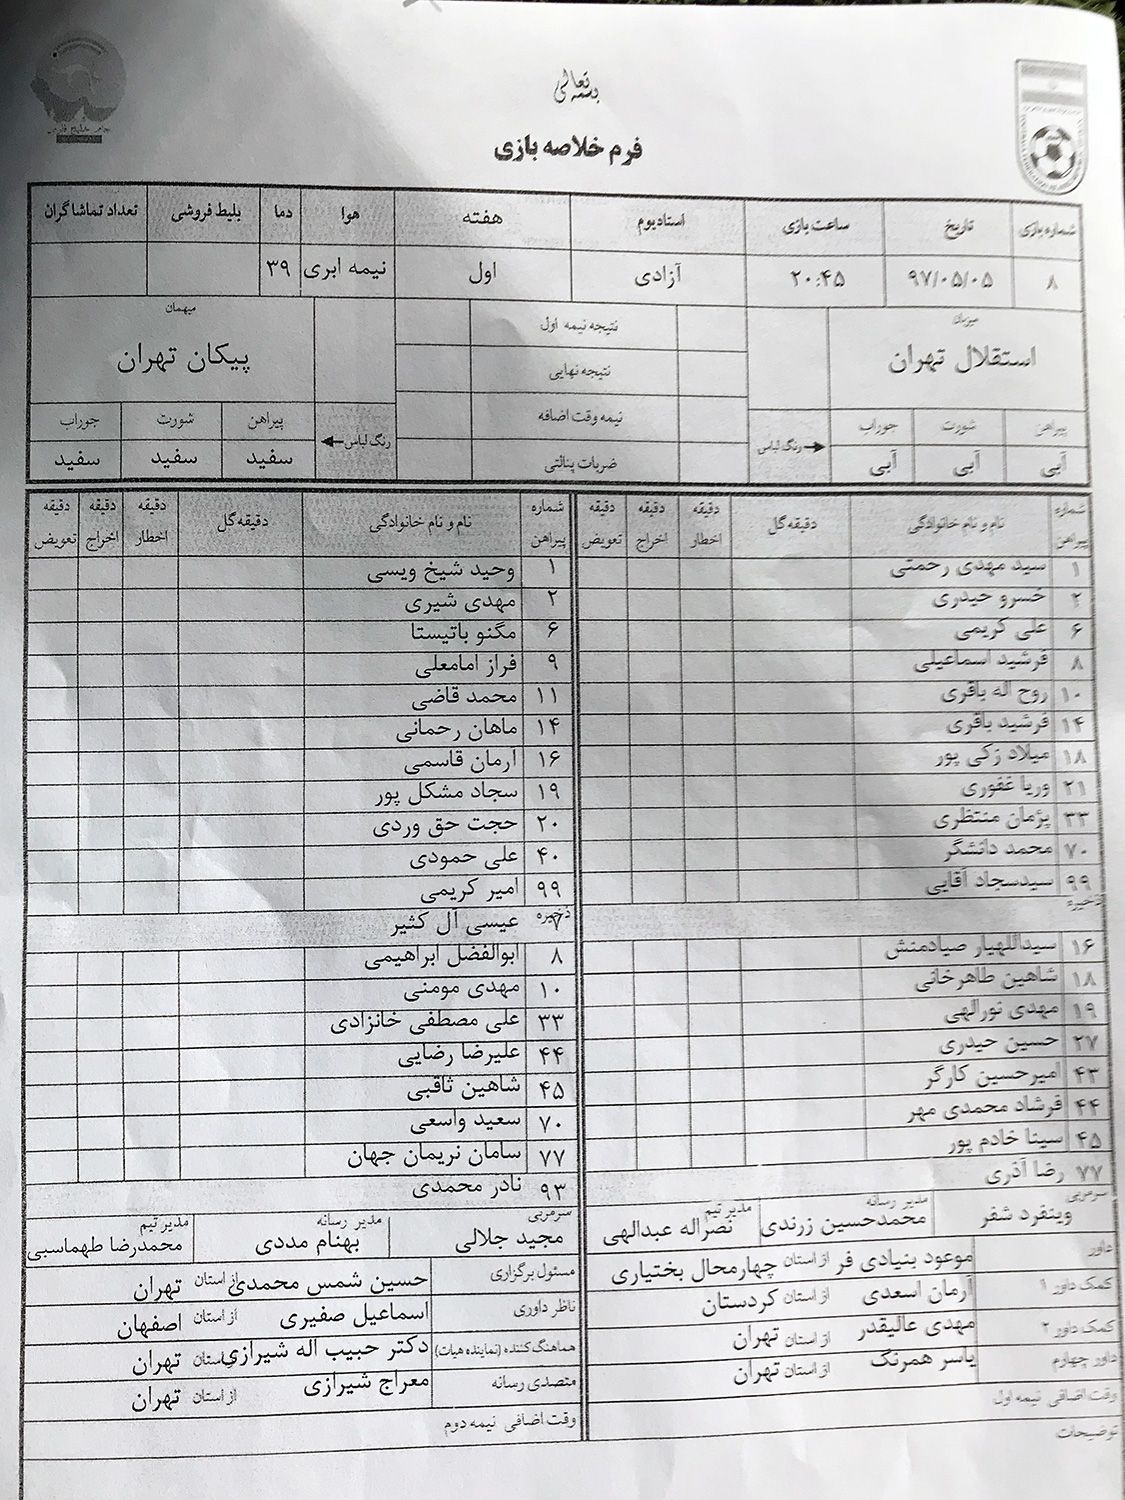 بسمه تعالی
جام خلیج فارس
فرم خلاصه بازی
شماره بازی تاریخ ساعت بازی استادیوم هفته هوا دما بلیط فروشی تعداد تماشاگران
۸ ۹۷/۰۵/۰۵ ۲۰:۴۵ آزادی اول نیمه ابری ۳۹
میزبان نتیجه نیمه اول میهمان
استقلال تهران نتیجه نهایی پیکان تهران
نیمه وقت اضافه
پیراهن شورت جوراب رنگ لباس رنگ لباس پیراهن شورت جوراب
آبی آبی آبی ضربات پنالتی سفید سفید سفید
شماره پیراهن نام و نام خانوادگی دقیقه گل دقیقه اخطار دقیقه اخراج دقیقه تعویض شماره پیراهن نام و نام خانوادگی دقیقه گل دقیقه اخطار دقیقه اخراج دقیقه تعویض
۱ سید مهدی رحمتی ۱ وحید شیخ ویسی
۲ خسرو حیدری ۲ مهدی شیری
۶ علی کریمی ۶ مگنو باتیستا
۸ فرشید اسماعیلی ۹ فراز امامعلی
۱۰ روح اله باقری ۱۱ محمد قاضی
۱۴ فرشید باقری ۱۴ ماهان رحمانی
۱۸ میلاد زکی پور ۱۶ آرمان قاسمی
۲۱ وریا غفوری ۱۹ سجاد مشکل پور
۳۳ پژمان منتظری ۲۰ حجت حق وردی
۷۰ محمد دانشگر ۴۰ علی حمودی
۹۹ سیدسجاد آقایی ۹۹ امیر کریمی
ذخیره ذخیره ۷ عیسی آل کثیر
۱۶ سیداللهیار صیادمنش ۸ ابوالفضل ابراهیمی
۱۸ شاهین طاهرخانی ۱۰ مهدی مومنی
۱۹ مهدی نورالهی ۳۳ علی مصطفی خانزادی
۲۷ حسین حیدری ۴۴ علیرضا رضایی
۴۳ امیرحسین کارگر ۴۵ شاهین ثاقبی
۴۴ فرشاد محمدی مهر ۷۰ سعید واسعی
۴۵ سینا خادم پور ۷۷ سامان نریمان جهان
۷۷ رضا آذری ۹۳ نادر محمدی
سرمربی وینفرد شفر مدیر رسانه محمدحسین زرندی مدیر تیم نصراله عبدالهی سرمربی مجید جلالی مدیر رسانه بهنام مددی مدیر تیم محمدرضا طهماسبی
داور موعود بنیادی فر از استان چهارمحال بختیاری مسئول برگزاری حسین شمس محمدی از استان تهران
کمک داور ۱ آرمان اسعدی از استان کردستان ناظر داوری اسماعیل صفیری از استان اصفهان
کمک داور ۲ مهدی عالیقدر از استان تهران هماهنگ کننده (نماینده هیات) دکتر حبیب اله شیرازی از استان تهران
داور چهارم یاسر همرنگ از استان تهران متصدی رسانه معراج شیرازی از استان تهران
وقت اضافی نیمه اول وقت اضافی نیمه دوم
توضیحات